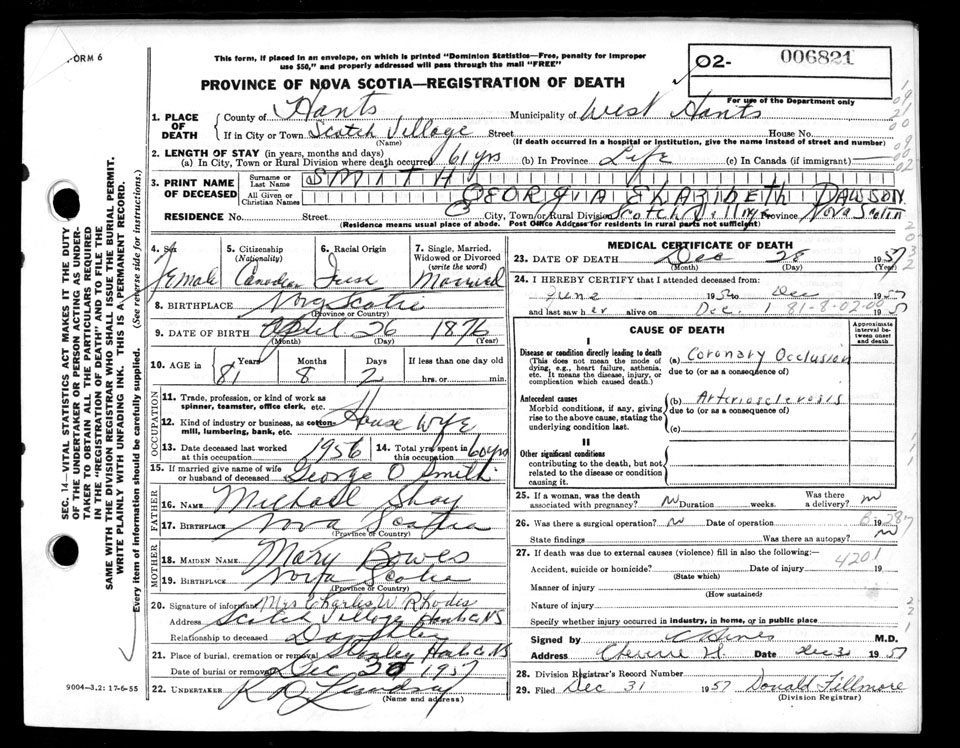 FORM 6
This form, if placed in an envelope, on which is printed "Dominion Statistics—Free, penalty for improper
use $50," and properly addressed will pass through the mail "FREE"
02- 006821
For use of the Department only
PROVINCE OF NOVA SCOTIA—REGISTRATION OF DEATH
1. PLACE OF DEATH
County of Hants Municipality of West Hants
If in City or Town Scotch Village Street House No.
(Name) (If death occurred in a hospital or institution, give the name instead of street and number)
2. LENGTH OF STAY (in years, months and days)
(a) In City, Town or Rural Division where death occurred 61 yrs (b) In Province Life (c) In Canada (if immigrant)
3. PRINT NAME OF DECEASED
Surname or Last Name SMITH
All Given or Christian Names GEORGIA ELIZABETH DAWSON
RESIDENCE No. Street City, Town or Rural Division Scotch Village Province Nova Scotia
(Residence means usual place of abode. Post Office Address for residents in rural parts not sufficient)
4. Sex Female
5. Citizenship (Nationality) Canadian
6. Racial Origin
7. Single, Married, Widowed or Divorced (write the word) Married
8. BIRTHPLACE Nova Scotia
(Province or Country)
9. DATE OF BIRTH April 26 1876
(Month) (Day) (Year)
10. AGE in 81 Years 8 Months 2 Days If less than one day old hrs. or min.
OCCUPATION
11. Trade, profession, or kind of work as
spinner, teamster, office clerk, etc.
12. Kind of industry or business, as cotton
mill, lumbering, bank, etc. House Wife
13. Date deceased last worked
at this occupation 1956
14. Total yrs. spent in
this occupation 60 yrs
15. If married give name of wife
or husband of deceased George O Smith
FATHER
16. NAME Michael Shay
17. BIRTHPLACE Nova Scotia
(Province or Country)
MOTHER
18. MAIDEN NAME Mary Bowes
19. BIRTHPLACE Nova Scotia
(Province or Country)
20. Signature of informant Mrs Charles W. Rhodes
Address Scotch Village Hants Co NS
Relationship to deceased Daughter
21. Place of burial, cremation or removal Stanley Hants Co NS
Date of burial or removal Dec 30 1957
22. UNDERTAKER
(Name and address)
MEDICAL CERTIFICATE OF DEATH
23. DATE OF DEATH Dec 28 1957
(Month) (Day) (Year)
24. I HEREBY CERTIFY that I attended deceased from:
June 1956 to Dec 1957
and last saw her alive on Dec. 1 1957
81-8-02-00
CAUSE OF DEATH
Approximate interval between onset and death
I
Disease or condition directly leading to death
(This does not mean the mode of
dying, e.g., heart failure, asthenia,
etc. It means the disease, injury, or
complication which caused death.)
(a) Coronary Occlusion
due to (or as a consequence of)
Antecedent causes
Morbid conditions, if any, giving
rise to the above cause, stating the
underlying condition last.
(b) Arteriosclerosis
due to (or as a consequence of)
(c)
II
Other significant conditions
contributing to the death, but not
related to the disease or condition
causing it.
25. If a woman, was the death
associated with pregnancy? no Duration weeks. Was there
a delivery? no
26. Was there a surgical operation? no Date of operation 19
State findings Was there an autopsy? no
27. If death was due to external causes (violence) fill in also the following:—
4201
Accident, suicide or homicide? Date of injury 19
(State which)
Manner of injury
(How sustained)
Nature of injury
Specify whether injury occurred in industry, in home, or in public place
Signed by M.D.
Address Cheverie Date Dec 30 1957
28. Division Registrar's Record Number
29. Filed Dec 31 1957 Donald Fillmore
(Division Registrar)
SEC. 14—VITAL STATISTICS ACT MAKES IT THE DUTY
OF THE UNDERTAKER OR PERSON ACTING AS UNDER-
TAKER TO OBTAIN ALL THE PARTICULARS REQUIRED
IN THE "REGISTRATION OF DEATH" AND TO FILE THE
SAME WITH THE DIVISION REGISTRAR WHO SHALL ISSUE THE BURIAL PERMIT.
WRITE PLAINLY WITH UNFADING INK. THIS IS A PERMANENT RECORD.
Every item of information should be carefully supplied. (See reverse side for instructions.)
9004—3,2: 17-6-55